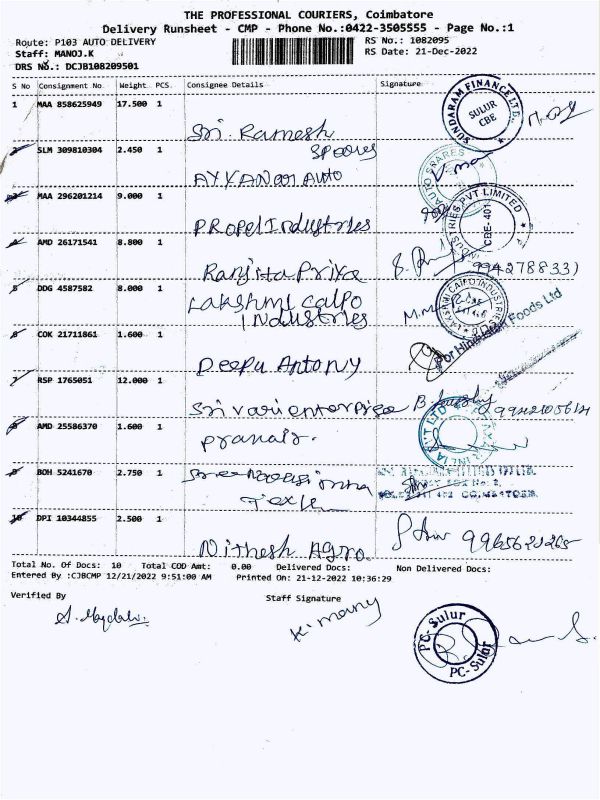 THE PROFESSIONAL COURIERS, Coimbatore
Delivery Runsheet - CMP - Phone No.:0422-3505555 - Page No.:1
Route: P103 AUTO DELIVERY
RS No.: 1082095
Staff: MANOJ.K
RS Date: 21-Dec-2022
DRS No.: DCJB108209501
S No Consignment No. Weight PCS. Consignee Details Signature
1 MAA 858625949 17.500 1
SUNDARAM FINANCE LTD. SULUR CBE
Sri. Ramesh
SLM 309810304 2.450 1 Spares
AYYANar Auto
AUTO SPARES
MAA 296201214 9.000 1
Propel Industries
INDUSTRIES PVT LIMITED CBE-401
AMD 26171541 8.800 1
Ranjita Priya 9942788331
5 DDG 4587582 8.000 1 Lakshmi Caipo
Industries
LAKSHMI CAIPO INDUSTRIES
6 COK 21711861 1.600 1
Deepu Antony
For Hindustan Foods Ltd
7 RSP 1765051 12.000 1
Sri vari enterprise
AMD 25586370 1.600 1
Pranav.
PVT LTD
9 BOH 5241670 2.750 1
10 DPI 10344855 2.500 1
Nithesh Agro. 9965621265
Total No. Of Docs: 10 Total COD Amt: 0.00 Delivered Docs: Non Delivered Docs:
Entered By :CJBCMP 12/21/2022 9:51:00 AM Printed On: 21-12-2022 10:36:29
Verified By
Staff Signature
PC-Sulur
PC-Sulur